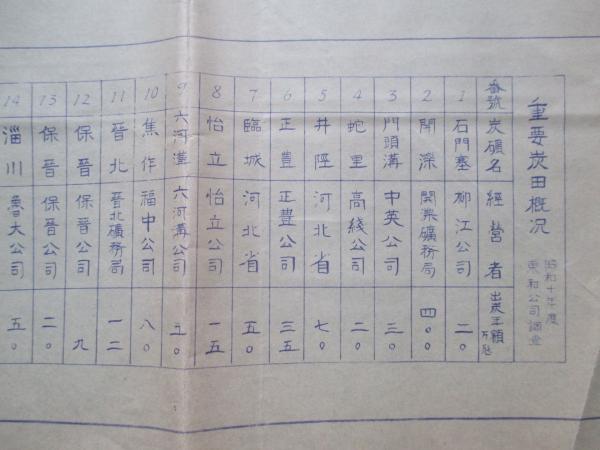 重要炭田概況
昭和十年度
東和公司調査
番號 炭礦名 經營者 出炭年額 万瓲
1 石門塞 柳江公司 二〇
2 開滦 開滦礦務局 四〇〇
3 門頭溝 中英公司 三〇
4 蛇里 高綫公司 二〇
5 井陘 河北省 七〇
6 正豊 正豊公司 三五
7 臨城 河北省 五〇
8 怡立 怡立公司 一五
9 六河溝 六河溝公司 五〇
10 焦作 福中公司 八〇
11 晉北 晉北礦務局 一二
12 保晉 保晉公司 九
13 保晉 保晉公司 二〇
14 淄川 魯大公司 五〇